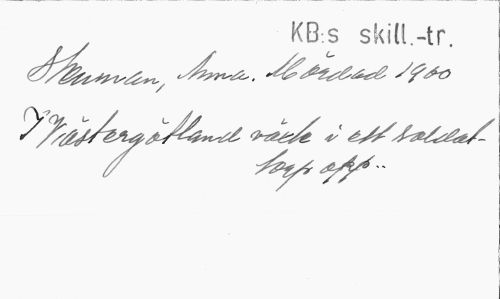 KB:s skill.-tr.
Stenman, Anna. Mördad 1900
I Västergötland växte i ett soldat-
torp opp..